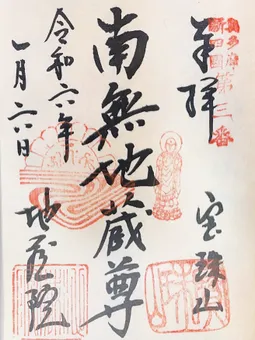 奉拝
第三番
宝珠山
南無地蔵尊
令和六年
一月六日
地蔵院